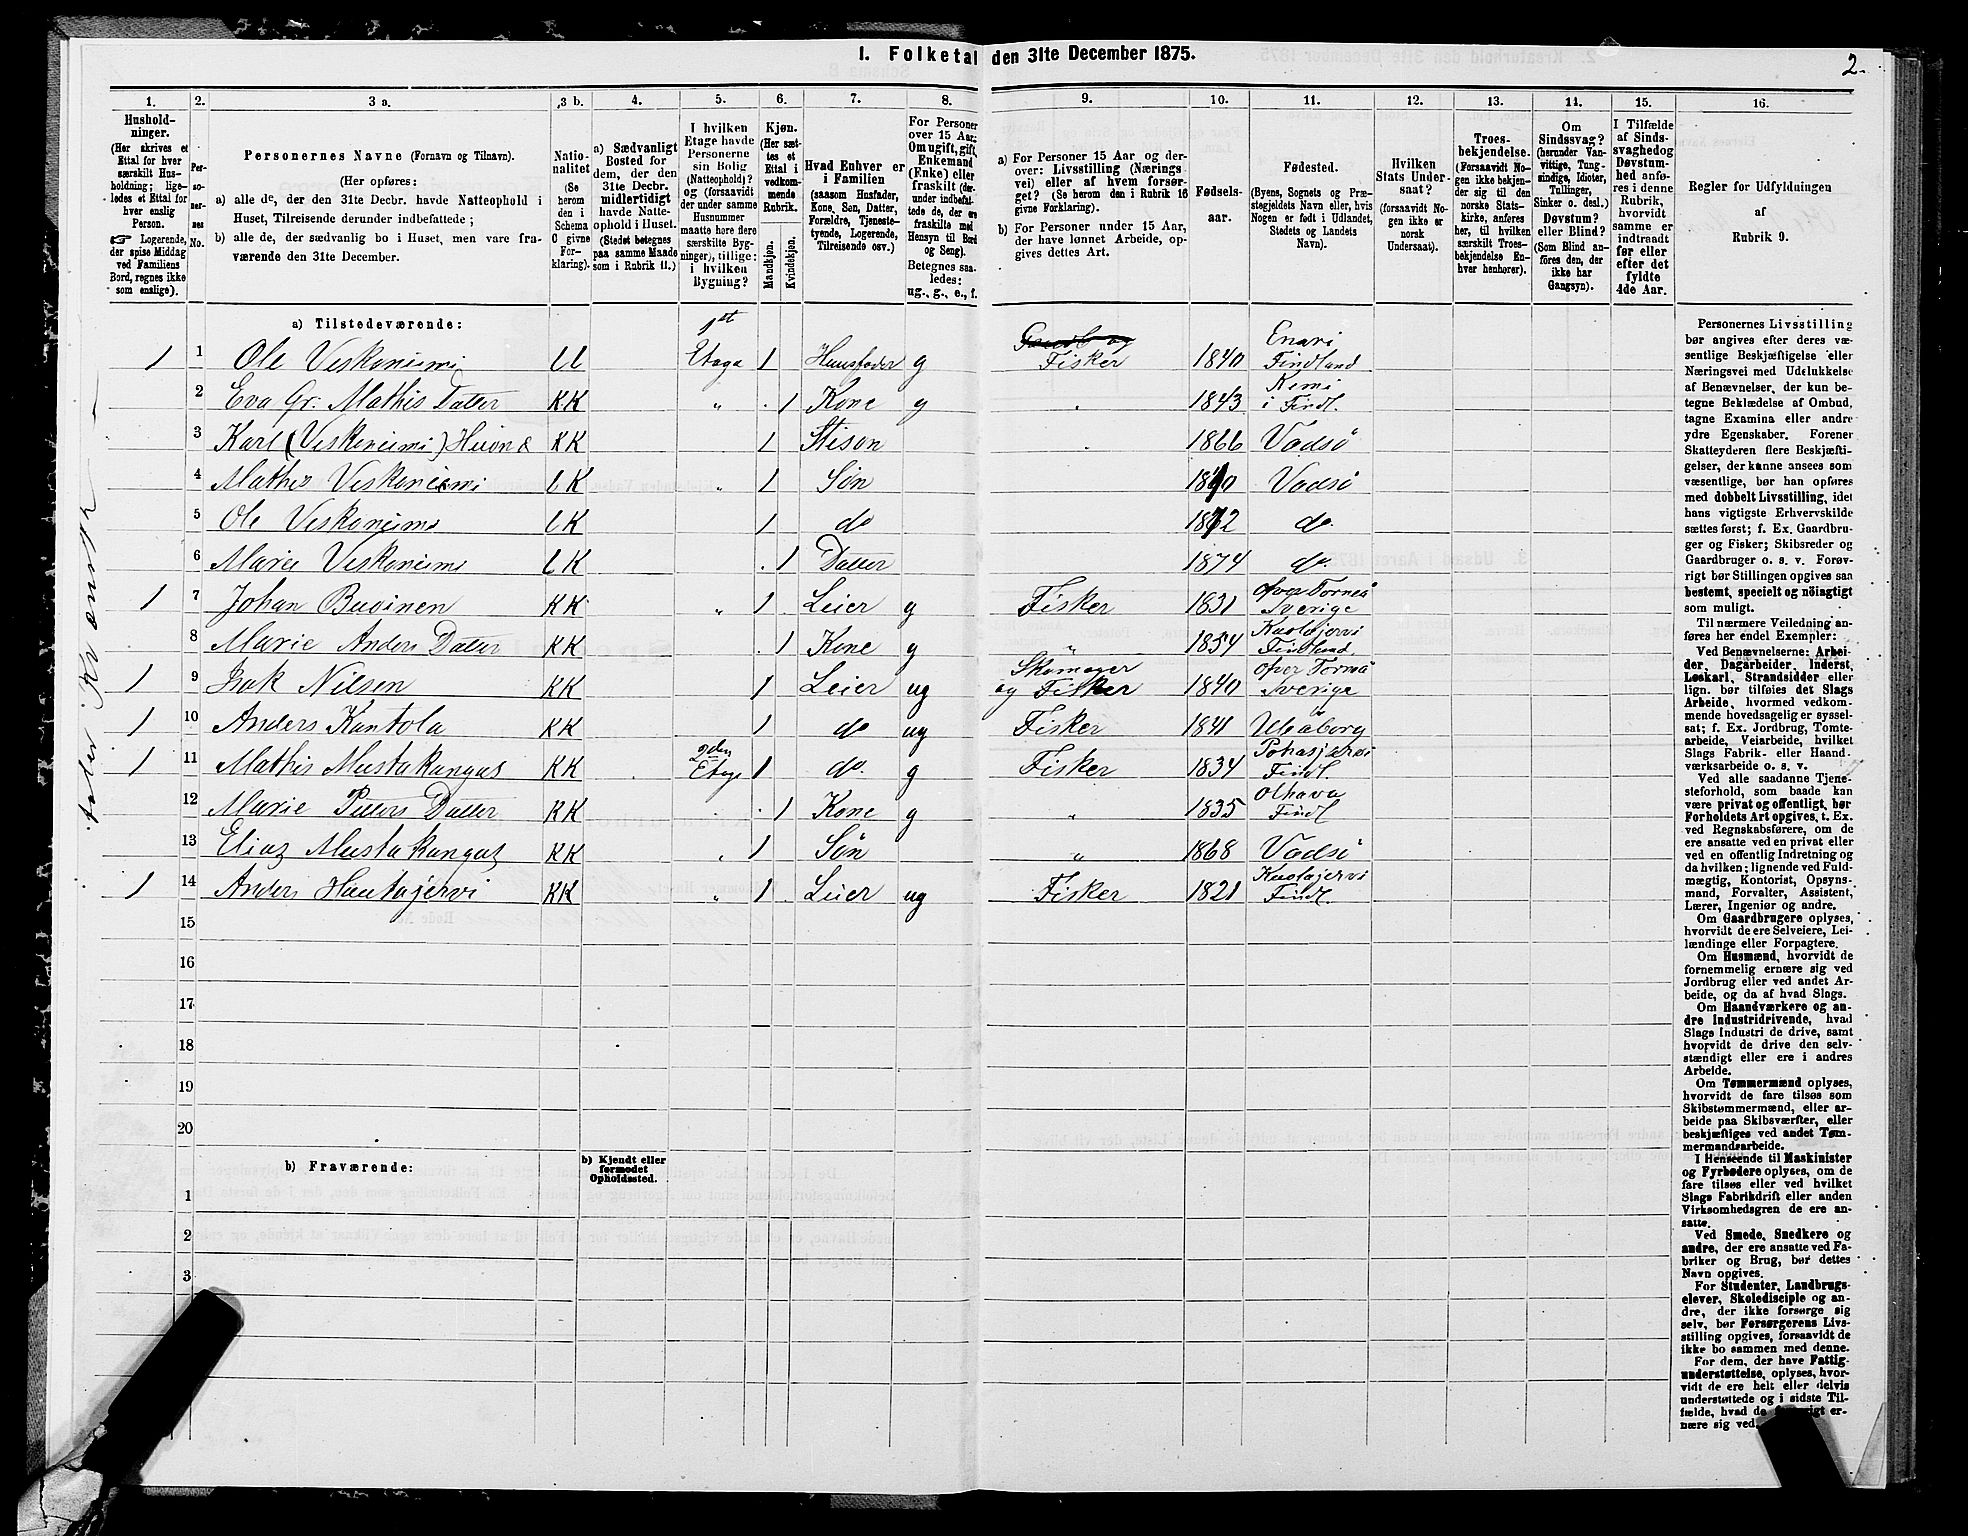 I. Folketal den 31te December 1875.
2.
1.
Hushold-
ninger.
(Her skrives et
Ettal for hver
særskilt Hus-
holdning; lige-
ledes et Ettal for
hver enslig
Person.
☞ Logerende,
der spise Middag
ved Familiens
Bord, regnes ikke
som enslige).
2.
Per-
so-
ner-
nes
No.
3 a.
Personernes Navne (Fornavn og Tilnavn).
(Her opføres:
a) alle de, der den 31te Decbr. havde Natteophold i
Huset, Tilreisende derunder indbefattede;
b) alle de, der sædvanlig bo i Huset, men vare fra-
værende den 31te December.
3 b.
Natio-
nalitet
(Se
herom
den i
Schema
C givne
For-
klaring).
4.
a) Sædvanligt
Bosted for
dem, der den
31te Decbr.
midlertidigt
havde Natte-
ophold i Huset.
(Stedet betegnes
paa samme Maade
som i Rubrik 11.)
5.
I hvilken
Etage havde
Personerne
sin Bolig
(Natteophold)?
og (forsaavidt
der under samme
Husnummer
maatte høre flere
særskilte Byg-
ninger), tillige:
i hvilken
Bygning?
6.
Kjøn.
(Her sæt-
tes et
Ettal i
vedkom-
mende
Rubrik.
Mandkjøn.
Kvindekjøn.
7.
Hvad Enhver er
i Familien
(saasom Husfader,
Kone, Søn, Datter,
Forældre, Tjeneste-
tyende, Logerende,
Tilreisende osv.)
8.
For Personer
over 15 Aar:
Om ugift, gift,
Enkemand
(Enke) eller
fraskilt (der-
under indbefat-
tede de, der ere
fraskilte med
Hensyn til Bord
og Seng).
Betegnes saa-
ledes:
ug., g., e., f.
9.
a) For Personer 15 Aar og der-
over: Livsstilling (Nærings-
vei) eller af hvem forsør-
get? (Se herom den i Rubrik 16
givne Forklaring).
b) For Personer under 15 Aar,
der have lønnet Arbeide, op-
gives dettes Art.
10.
Fødsels-
aar.
11.
Fødested.
(Byens, Sognets og Præ-
stegjeldets Navn eller, hvis
Nogen er født i Udlandet,
Stedets og Landets
Navn).
12.
Hvilken
Stats Under-
saat?
(forsaavidt No-
gen ikke er
norsk
Undersaat).
13.
Troes-
bekjendelse.
(Forsaavidt No-
gen ikke bekjen-
der sig til den
norske Stats-
kirke, anføres
her, til hvilken
særskilt Troes-
bekjendelse En-
hver henhører).
14.
Om
Sindssvag?
(herunder Van-
vittige, Tung-
sindige, Idioter,
Tullinger,
Sinker o. desl.)
Døvstum?
eller Blind?
(Som Blind an-
føres den, der
ikke har
Gangsyn).
15.
I Tilfælde
af Sinds-
svaghed og
Døvstum-
hed anfø-
res i denne
Rubrik,
hvorvidt
samme er
indtraadt
før eller
efter det
fyldte
4de Aar.
16.
Regler for Udfyldningen
af
Rubrik 9.
a) Tilstedeværende:
1 1 Ole Veskoniemi LL 1st Etage 1 Huusfader g Gaardb og Fisker 1840 Enari Findland
2 Eva Gr. Mathis Datter KK " 1 Kone g " 1843 Kemi i Findl.
3 Karl (Veskoniemi) KK 1 Stisøn " 1866 Vadsö
4 Mathis Veskoniemi LK " 1 Søn 1870 Vadsö
5 Ole Veskoniemi LK 1 do 1872 do.
6 Marie Veskoniemi LK 1 Datter 1874 do.
1 7 Johan Buoinen KK " 1 Leier g Fisker 1831 Over Torneå Sverige
8 Marie Anders Datter KK 1 Kone g " 1834 Kuolajervi Finland
1 9 Isak Nilsen KK 1 Leier ug Skomager og Fisker 1840 Over Torneå Sverige
1 10 Anders Kantola KK 1 do ug Fisker 1841 Uleåborg
1 11 Mathis Mustakangas KK 2den Etage 1 do. g Fisker 1834 Findl.
12 Marie Peters Datter KK 1 Kone g " 1835 Olhava Findl
13 Elias Mustakangas KK " 1 Søn " 1868 Vadsö
1 14 Anders Hautajervi KK " 1 Leier ug Fisker 1821 Kuolajervi Findl.
15
16
17
18
19
20
b) Fraværende:
b) Kjendt eller
formodet
Opholdssted.
1
2
3
Personernes Livsstilling
bør angives efter deres væ-
sentlige Beskjæftigelse eller
Næringsvei med Udelukkelse
af Benævnelser, der kun be-
tegne Beklædelse af Ombud,
tagne Examina eller andre
ydre Egenskaber. Forener
Skatteyderen flere Beskjæfti-
gelser, der kunne ansees som
væsentlige, bør han opføres
med dobbelt Livsstilling, idet
hans vigtigste Erhvervskilde
sættes først; f. Ex. Gaardbru-
ger og Fisker; Skibsreder og
Gaardbruger o. s. v. Forøv-
rigt bør Stillingen opgives saa
bestemt, specielt og nöiagtigt
som muligt.
Til nærmere Veiledning an-
føres her endel Exempler:
Ved Benævnelserne: Arbei-
der, Dagarbeider, Inderst,
Løskarl, Strandsidder eller
lign. bør tilføies det Slags
Arbeide, hvormed vedkom-
mende hovedsagelig er syssel-
sat; f. Ex. Jordbrug, Tomte-
arbeide, Veiarbeide, hvilket
Slags Fabrik- eller Haand-
værksarbeide o. s. v.
Ved alle saadanne Tjene-
steforhold, som baade kan
være privat og offentligt, bør
Forholdets Art opgives, t. Ex.
ved Regnskabsførere, om de
ere ansatte ved en privat eller
ved en offentlig Indretning og
da hvilken; lignende ved Fuld-
mægtig, Kontorist, Opsyns-
mand, Forvalter, Assistent,
Lærer, Ingeniør og andre.
Om Gaardbrugere oplyses,
hvorvidt de ere Selveiere, Lei-
lændinge eller Forpagtere.
Om Husmænd, hvorvidt de
fornemmelig ernære sig ved
Jordbrug eller ved andet Ar-
beide, og da af hvad Slags.
Om Haandværkere og an-
dre Industridrivende, hvad
Slags Industri de drive, samt
hvorvidt de drive den selv-
stændigt eller ere i andres
Arbeide.
Om Tømmermænd oplyses,
hvorvidt de fare tilsøs som
Skibstømmermænd, eller ar-
beide paa Skibsværfter, eller
beskjæftiges ved andet Tøm-
mermandsarbeide.
I Henseende til Maskinister
og Fyrbødere oplyses, om de
fare tilsøs eller ved hvilket
Slags Fabrikdrift eller anden
Virksomhedsgren de ere an-
satte.
Ved Smede, Snedkere og
andre, der ere ansatte ved Fa-
briker og Brug, bør dettes
Navn opgives.
For Studenter, Landbrugs-
elever, Skoledisciple og an-
dre, der ikke forsørge sig
selv, bør Forsørgerens Livs-
stilling opgives, forsaavidt de
ikke bo sammen med denne.
For dem, der have Fattig-
understøttelse, oplyses, hvor-
vidt de ere helt eller delvis
understøttede og i sidste Til-
fælde, hvad de forøvrigt er-
nære sig ved.